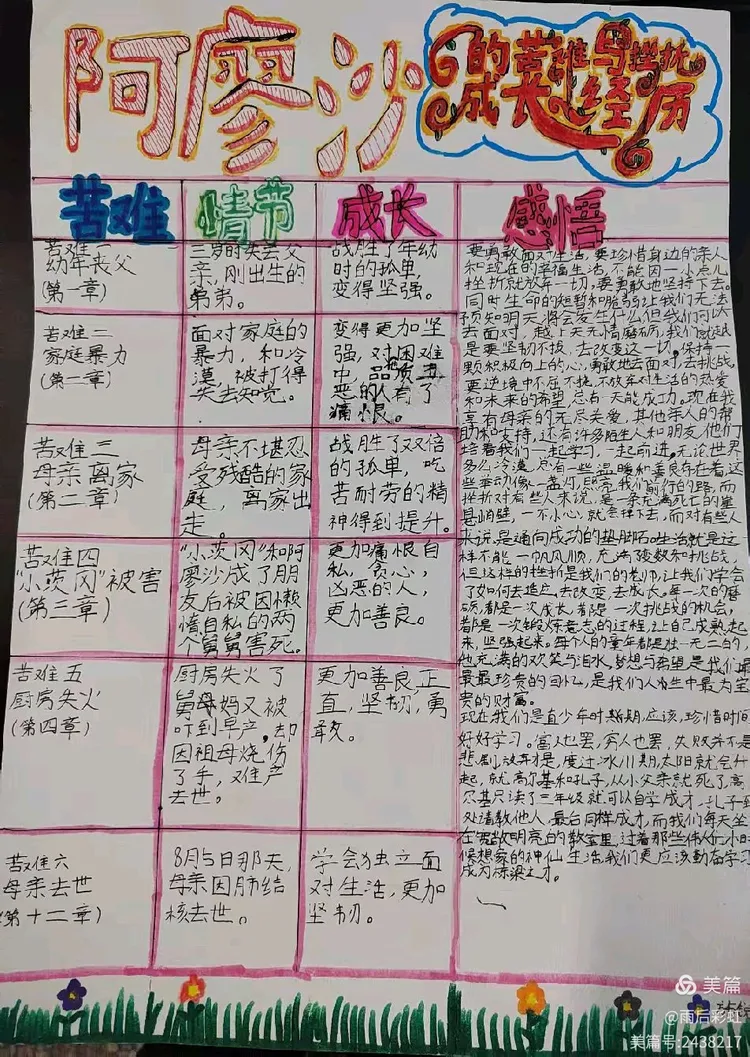 阿廖沙
的苦难与挫折
成长经历
苦难
情节
成长
感悟
苦难一
幼年丧父
(第一章)
三岁时失去父
亲,刚出生的
弟弟。
战胜了年幼
时的孤单,
变得坚强。
苦难二
家庭暴力
(第二章)
面对家庭的
暴力,和冷
漠,被打得
失去知觉。
变得更加坚
强,对困难
中,品质
恶的人有了
痛恨。
苦难三
母亲离家
(第二章)
母亲不堪忍
受残酷的家
庭,离家出
走。
战胜了双倍
的孤单,吃
苦耐劳的精
神得到提升。
苦难四
“小茨冈”被害
(第三章)
“小茨冈”和阿
廖沙成了朋
友后被因懒
惰自私的两
个舅舅害死。
更加痛恨自
私,贪心,
凶恶的人,
更加善良。
苦难五
厨房失火
(第四章)
厨房失火了
舅母妈又被
吓到早产,却
因祖母烧伤
了手,难产
去世。
更加善良,正
直,坚韧,勇
敢。
苦难六
母亲去世
(第十二章)
8月5日那天,
母亲因肺结
核去世。
学会独立面
对生活,更加
坚韧。
要勇敢面对生活,要珍惜身边的亲人
和现在的幸福生活,不能因一小点儿
挫折就放弃一切,要勇敢地坚持下去。
同时生命的短暂和脆弱让我们无法
预知明天将会发生什么但我们可以
去面对,越上天无情磨砺,我们就越
是要坚韧不拔,去改变这一切,保持一
颗积极向上的心,勇敢地去面对,去挑战,
要逆境中不屈不挠,不放弃对生活的热爱
和未来的希望,总有一天能成功。现在我
享有母亲的无尽关爱,其他亲人的帮
助和支持,还有许多陌生人和朋友,他们
陪着我们一起学习,一起前进,无论世界
多么冷漠,总有一些温暖和善良存在着,这
些举动像一盏灯,照亮我们前行的路,而
挫折对有些人来说,是一条充满死亡的悬
崖峭壁,一不小心,就会掉下去,而对有些人
来说,是通向成功的垫脚石。生活就是这
样不能一帆风顺,充满变数和挑战,
但这样的挫折是我们的老师,让我们学会
了如何去适应,去改变,去成长。每一次的磨
砺,都是一次成长,都是一次挑战的机会,
都是一次锻炼意志的过程,让自己成熟起
来,坚强起来。每个人的童年都是独一无二的,
他充满的欢笑与泪水,梦想与希望,是我们最
最最珍贵的回忆,是我们人生中最为宝
贵的财富。
现在我们是青少年时期期,应该,珍惜时间
好好学习。富人也罢,穷人也罢,失败并不是
悲剧,放弃才是,度过冰川期,太阳就会升
起,就高尔基和孔子,从小父亲就死了,高
尔基只读了三年级就可以自学成才,孔子到
处请教他人,最后同样成才,而我们每天坐
在宽敞明亮的教室里,过着那些伟人们小时
候想家的神仙生活,我们更应该勤奋学习
成为栋梁之才。
美篇
@雨后彩虹
美篇号:2438217